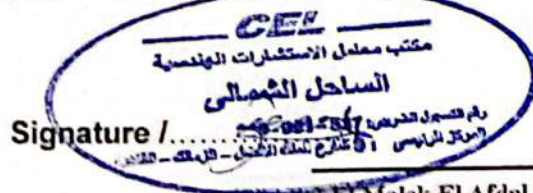 CEL
مكتب معامل الاستشارات الهندسية
الساحل الشمالى
رقم التسجيل الضريبى:
Signature /..........
المركز الرئيسى : شارع الملك الأفضل - الزمالك - القاهرة
El Malek El Afdal